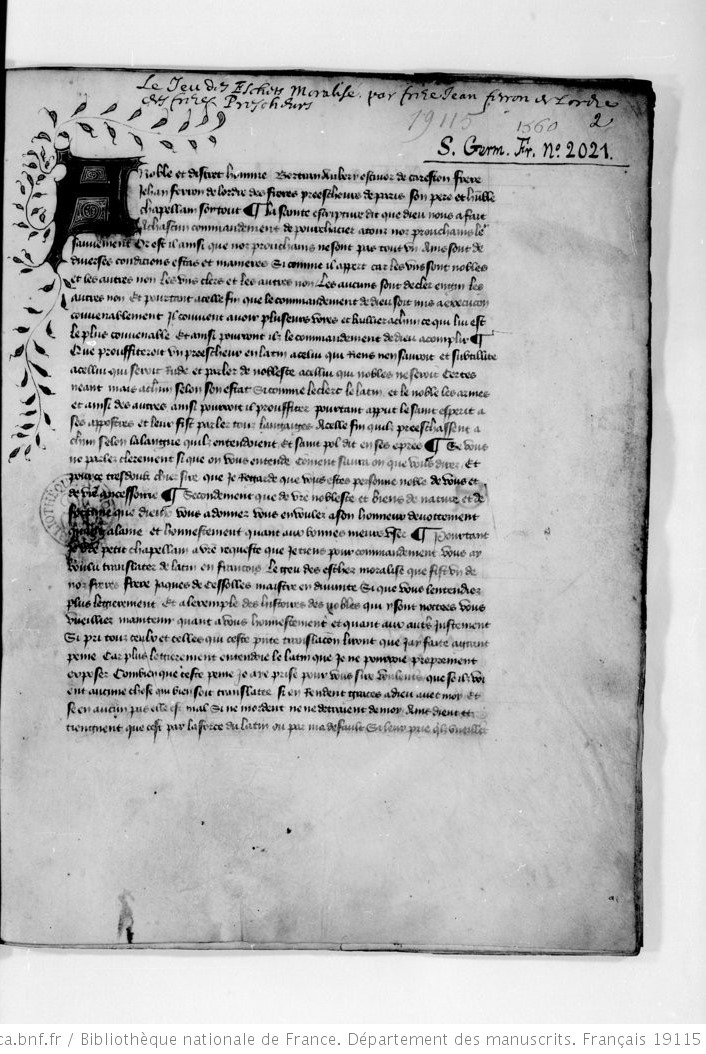 Le Jeu des Eschets Moralise. par frere Jean ferron de Lordre
des freres Prescheurs
19115 1560 2
S. Germ. Fr. No. 2021.
A noble et discret homme Bertran Aubery escuier de tarascon frere
Jehan ferron de lordre des freres preescheurs de paris son petit et humble
chapellain son tout ¶ La sainte escripture dit que dieu nous a fait
a chascun commandement de pourchacier a tour nor prouchains le
sauvement Or est il ainsi que nor prouchains ne sont pas tout vn Ains sont de
diverses condicions estas et manieres Si comme il appert car les vns sont nobles
et les autres non les vns clers et les autres non Les aucuns sont de cler engin les
autres non Et pourtant a celle fin que le commandement de dieu soit mis a execucion
convenablement Il convient avoir plusieurs voies et baillier a chascun ce qui lui est
le plus convenable Et ainsi pourront il le commandement de dieu acomplir ¶
Que prouffiteroit vn preescheur en latin a celui qui riens nen sauroit et subtilite
a cellui qui seroit rude et parler de noblesce a cellui qui nobles ne seroit Certes
neant mais a chascun selon son estat Si comme le clerc le latin et le noble les armes
et ainsi des autres ainsi pourront il prouffiter pourtant apprit le saint esperit a
ses appostres et leur fist parler tour langaiges A celle fin quilz preeschassent a
chascun selon la langue quilz entendoient et saint pol dit en ses epres ¶ Se vous
ne parler clerement si que on vous entende coment saura on que vous direr Et
pource tresdoubte chier sire que Je Regarde que vous estes personne noble de vous et
de vre ancessoirie ¶ Secondement que de vre noblesce et biens de nature et de
fortune que dieu vous a donner vous en vouler a son honneur devottement
quant a lame et honnestement quant aux bonnes meurs vser ¶ Pourtant
Je vre petit chapellain a vre requeste que Je tiens pour commandement vous ay
voulu translater de latin en francois Le Jeu des eschez moralise que fist vn de
nor freres frere Jaques de Cessolles maistre en divinite Si que vous lentendier
plus legierement Et a lexemple des histoires des nobles qui y sont nottees vous
vueillier maintenir quant a vous honnestement et quant aux autres Justement
Si pri tour ceulx et celles qui ceste pnte translacon liront que Jay faite a grant
peine Car plus legierement entendoie le latin que Je ne pouvoie proprement
exposer Combien que ceste peine Je aye prise pour vous sire voulentiers que se il voi
ent aucune chose qui bien soit translatee si en Rendent graces a dieu avec moy Et
se en aucun pas elle est mal Si ne mordent ne ne detraient de moy Ains dient et
tiengnent que cest par la force du latin ou par ma deffault Si leur prie quilz vueillent
ca.bnf.fr / Bibliothèque nationale de France. Département des manuscrits. Français 19115